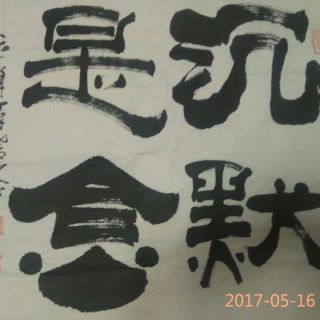 沉默
是金
2017-05-16